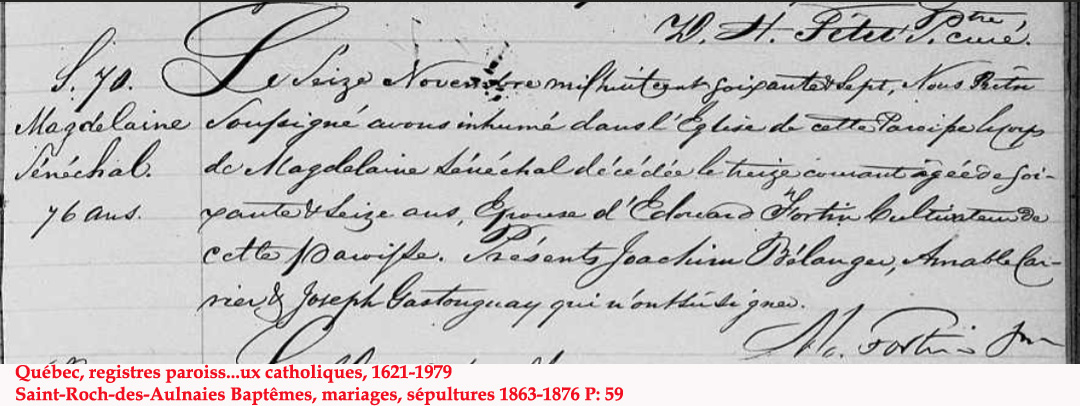 D. H. Têtu Ptre, curé.
S. 70.
Magdelaine
Sénéchal.
76 ans.
Le Seize Novembre mil huit cent soixante & sept, Nous Prêtre
Soussigné avons inhumé dans l'Eglise de cette Paroisse le corps
de Magdelaine Sénéchal décédée le treize courant âgée de soi-
xante & Seize ans, Epouse d'Edouard Fortin Cultivateur de
cette Paroisse. Présents Joachim Bélanger, Amable Car-
rier & Joseph Gastonguay qui n'ont su signer.
Fortin
Québec, registres paroiss...ux catholiques, 1621-1979
Saint-Roch-des-Aulnaies Baptêmes, mariages, sépultures 1863-1876 P: 59